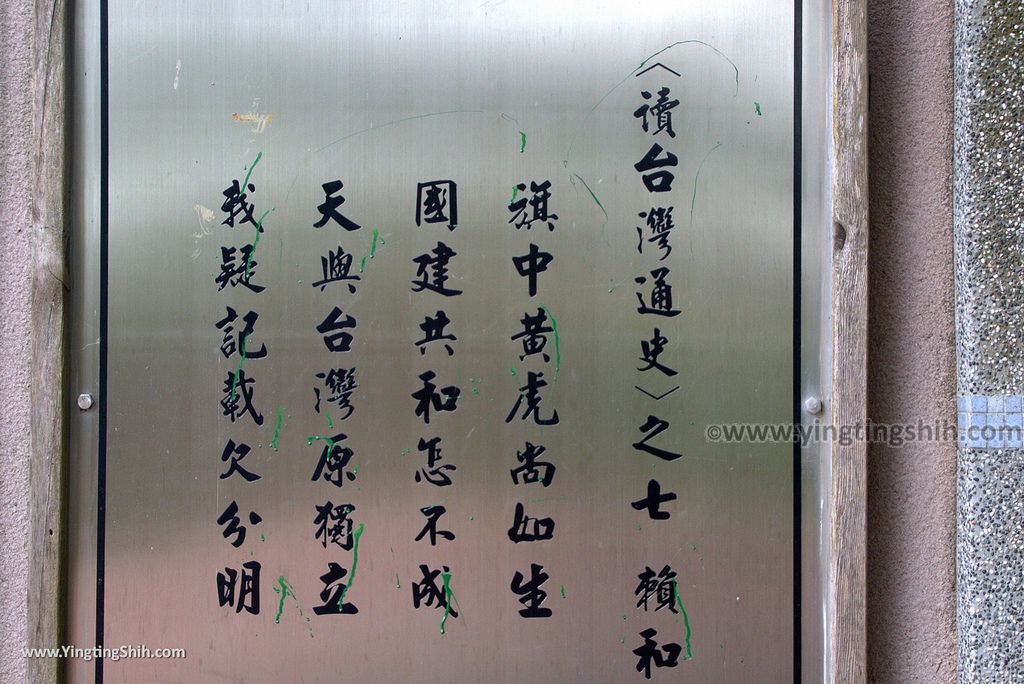 〈讀台灣通史〉之七 賴和
旗中黃虎尚如生
國建共和怎不成
天與台灣原獨立
我疑記載欠分明
©www.yingtingshih.com
www.YingtingShih.com